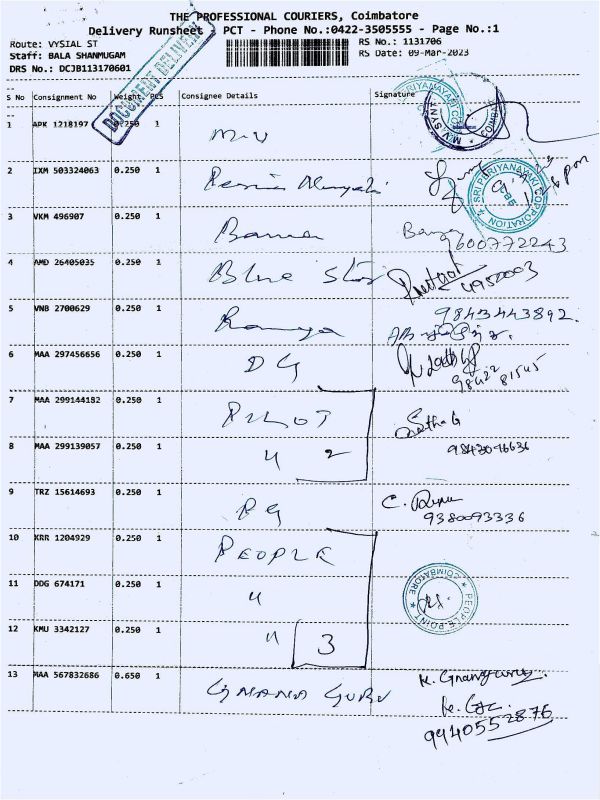 THE PROFESSIONAL COURIERS, Coimbatore
Delivery Runsheet - PCT - Phone No.:0422-3505555 - Page No.:1
Route: VYSIAL ST
RS No.: 1131706
Staff: BALA SHANMUGAM
RS Date: 09-Mar-2023
DRS No.: DCJB113170601
DOCUMENT DELIVERY
S No Consignment No Weight PCS Consignee Details Signature
1 APK 1218197 0.250 1 M.V
2 IXM 503324063 0.250 1
SRI PERIYANAYAKI CORPORATION
3 VKM 496907 0.250 1
9600772243
4 AMD 26405035 0.250 1 Blue Star
4952003
5 VNB 2700629 0.250 1 Ramya
9843443892.
6 MAA 297456656 0.250 1 DG
98422 81545
7 MAA 299144182 0.250 1 PILOT
8 MAA 299139057 0.250 1 " 2
9 TRZ 15614693 0.250 1 PG
9380093336
10 KRR 1204929 0.250 1 PEOPLE
11 DDG 674171 0.250 1 "
PEOPLE POINT
COIMBATORE
12 KMU 3342127 0.250 1 " 3
13 MAA 567832686 0.650 1 GNANA GURU
9940552876